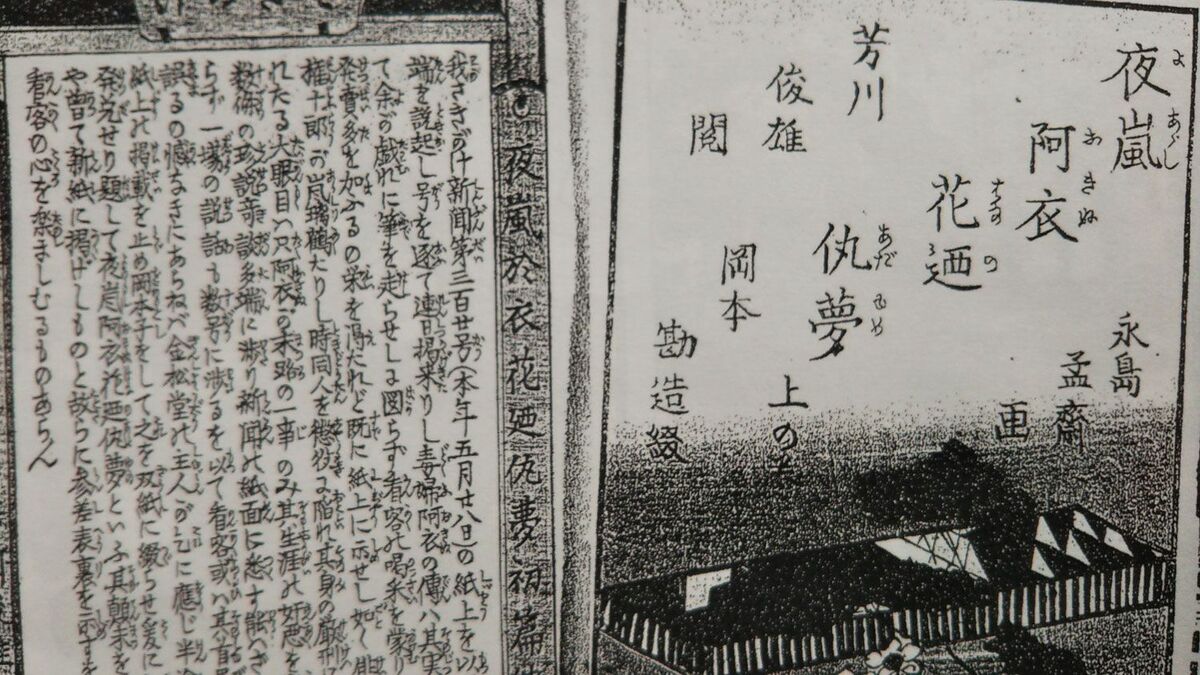 夜嵐
阿衣
花廼
仇夢
上の
永島
孟齋
画
芳川
俊雄
閲
岡本
勘造
綴
夜嵐於衣花廼仇夢初篇
我さきがけ新聞第三百廿号(本年五月廿八日)の紙上を以
端を説起し号を逐て連日掲来りし毒婦阿衣の傳ハ其実
て余が戯れに筆を走らせしに図らず看客の喝采を蒙り
発賣多を加ふるの栄を得たれど既に紙上に示せし如く
権十郎が嵐璃鶴たりし時同人を懲役に陥れ其身の厳刑
れたる大眼目ハ只阿衣が末路の一事のみ其生涯の奸悪を
数個の珍説奇談多端に渉り新聞の紙面に悉す能ハざ
らず一場の説話も数号に渉るを以て看客或ハ其首尾
誤るの憾なきにあらねバ金松堂の主人が乞に應じ半途
紙上の掲載を止め岡本子をして之を双紙に綴らせ爰に
発兌せり題して夜嵐阿衣花廼仇夢といふ其顛末を
や曽て新紙に掲げしものと故らに参差表裏を示すを
看客の心を楽ましむるものあらん